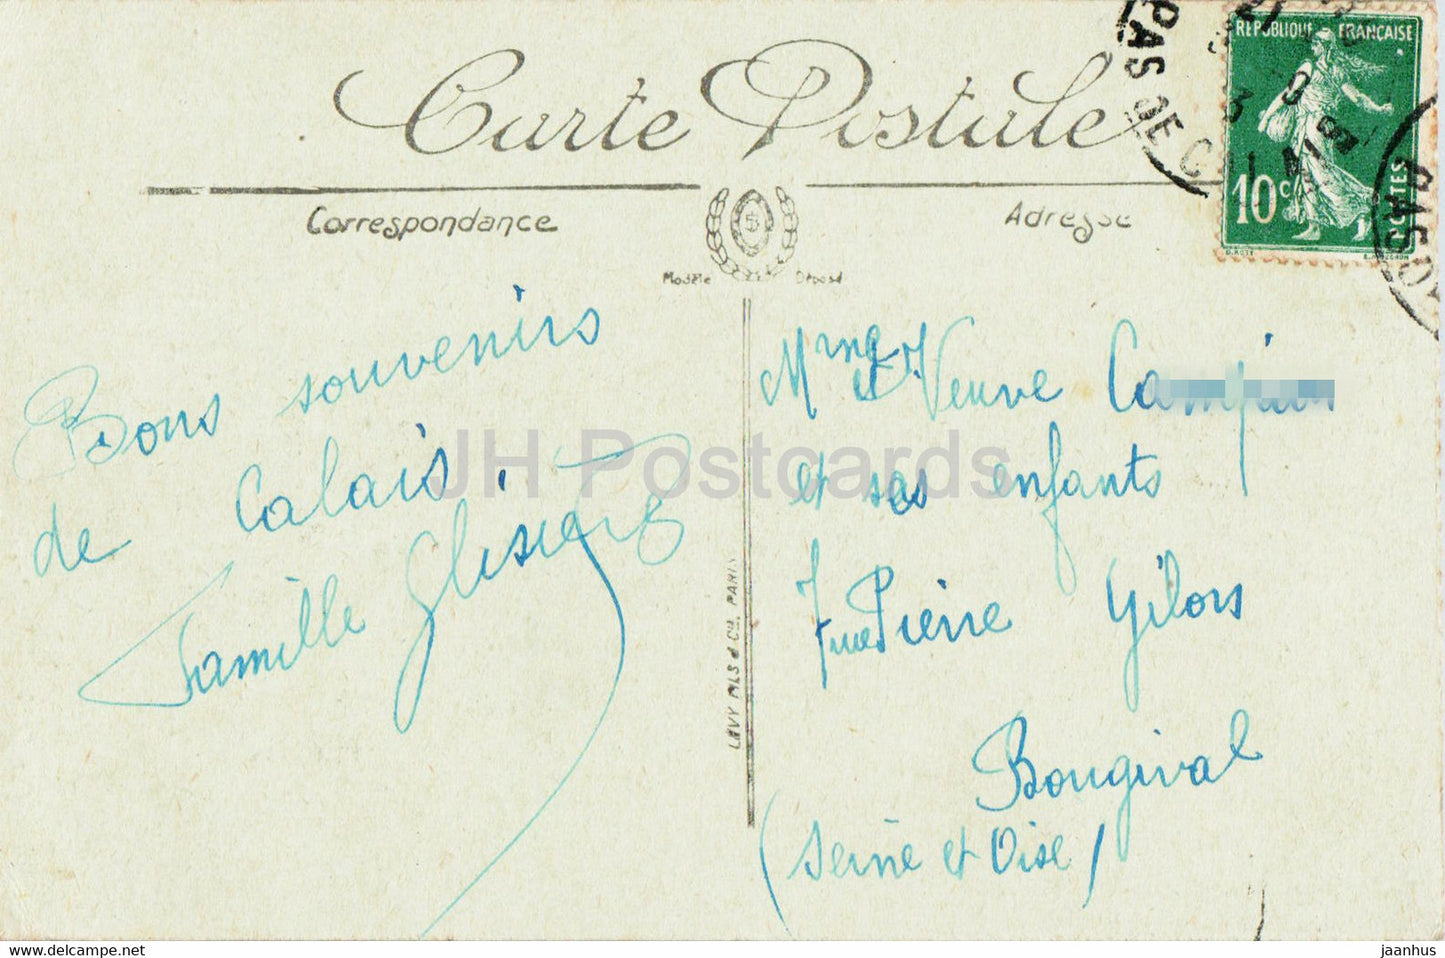 Carte Postale
Correspondance
Adresse
Modèle Déposé
RÉPUBLIQUE FRANÇAISE
10c POSTES
PAS DE CALAIS
Bons souvenirs
de Calais.
Famille
Mme Veuve
et ses enfants
rue Pierre Gilors
Bougival
(Seine et Oise)
LÉVY FILS & Cie, PARIS
JH Postcards
www.delcampe.net
jaanhus